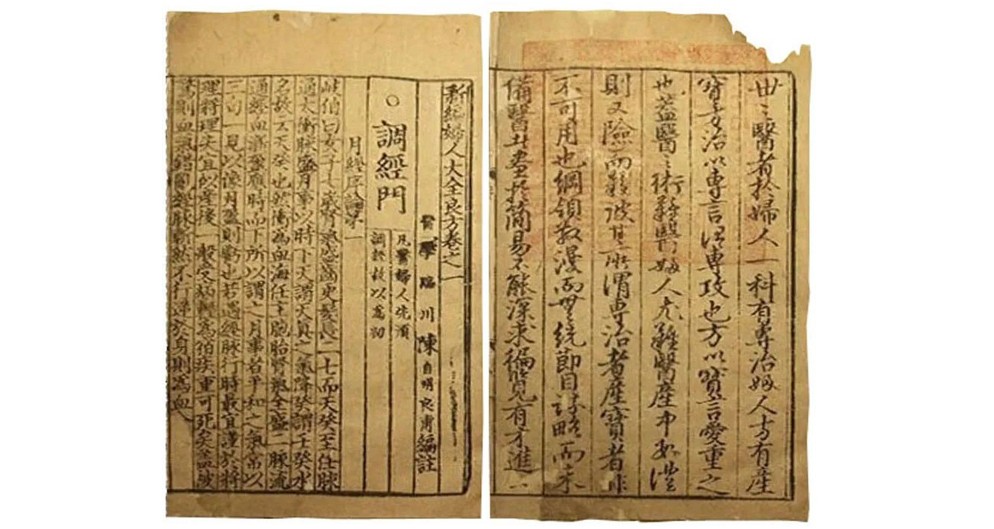 世〻醫者於婦人一科有專治婦人方有產
寶方治以專言謂專攻也方以寶言愛重之
也蓋醫〻術難醫婦人尤難醫產中數證
則又險而難彼其所謂專治者產寶者非
不可用也綱領散漫而無統節目詳略而未
備醫者盡於簡易不能深求徧覽有才進一
新編婦人大全良方卷之一
醫學臨川陳自明良甫編註
○調經門
凡醫婦人先須
調經故以爲初
月經序論第一
岐伯曰女子七歲腎氣盛齒更髮長二七而天癸至任脉
通太衝脉盛月事以時下天謂天真之氣降癸謂壬癸水
名故云天癸也然衝爲血海任主胞胎腎氣全盛二脉流
通經血漸盈應時而下所以謂之月事者平和之氣常以
三旬一見以像月盈則虧也若遇經脉行時最宜謹於將
理將理失宜似產後一般受病輕爲宿疾重可死矣盖被
驚則血氣錯亂經脉漸然不行逆於身則爲血